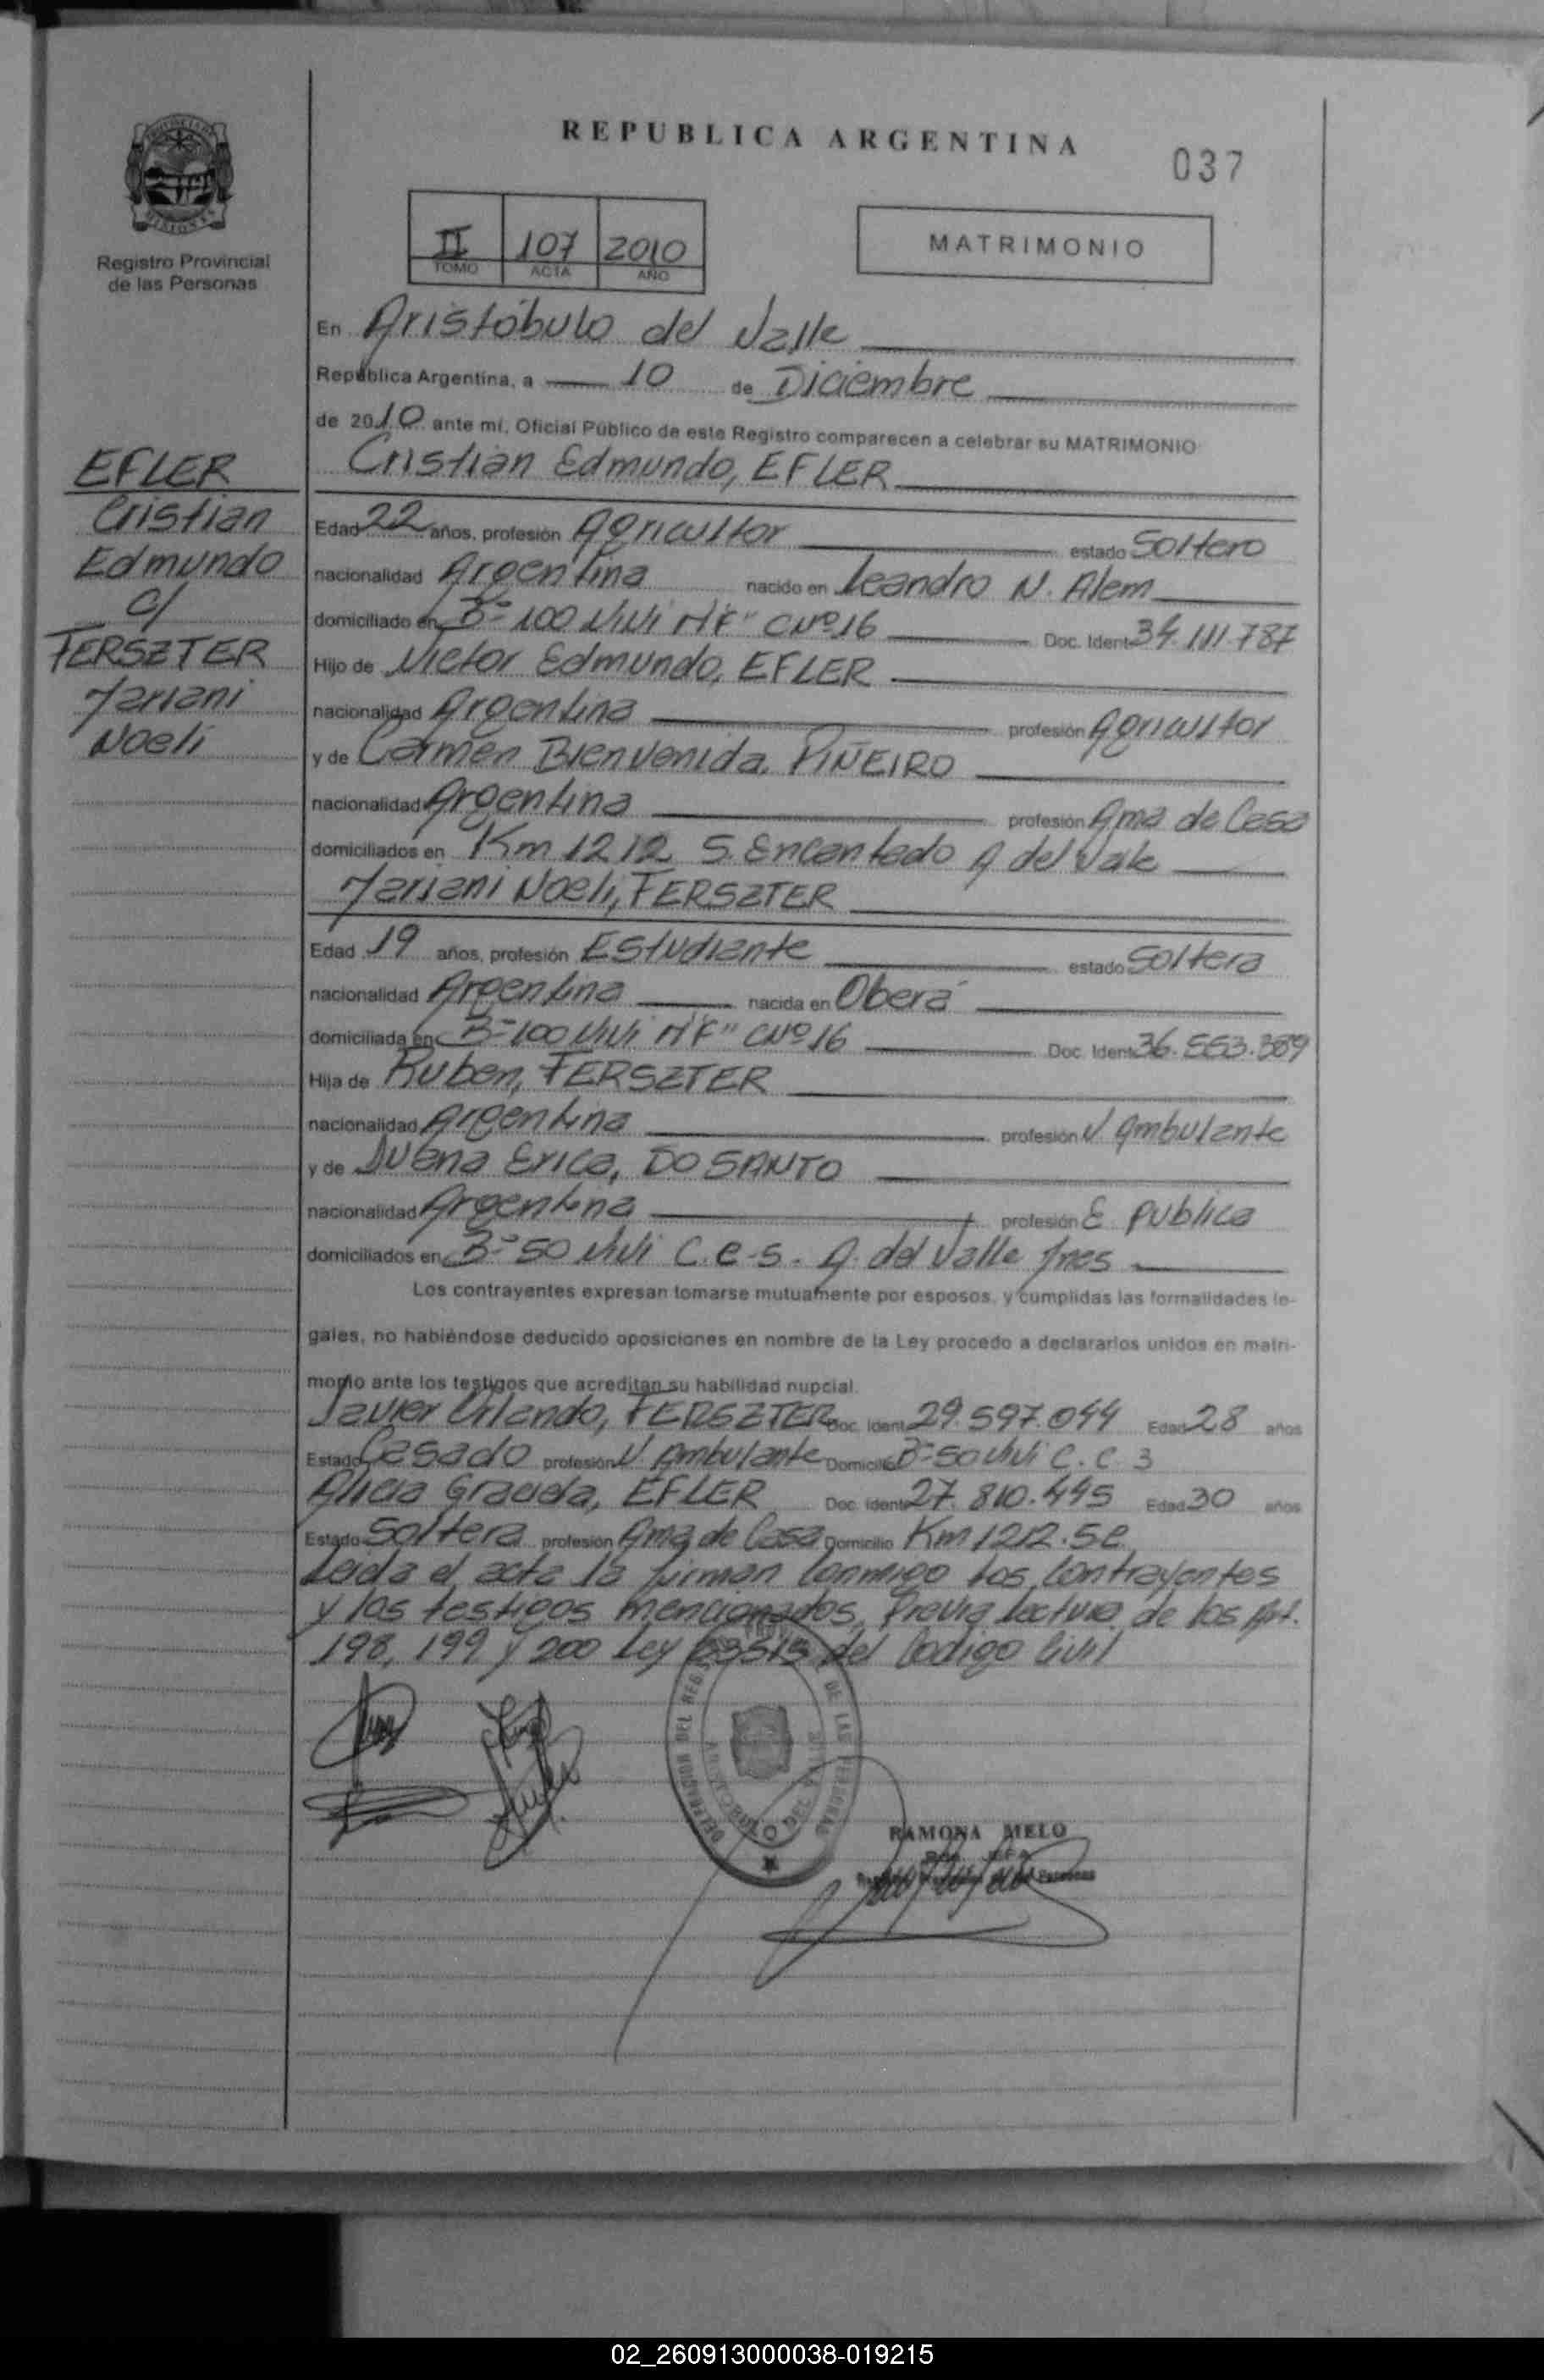 REPUBLICA ARGENTINA
037
Registro Provincial
de las Personas
II 107 2010
TOMO ACTA AÑO
MATRIMONIO
En Aristóbulo del Valle
República Argentina, a 10 de Diciembre
de 2010 ante mí, Oficial Público de este Registro comparecen a celebrar su MATRIMONIO
Cristian Edmundo, EFLER
EFLER
Cristian
Edmundo
c/
FERSZTER
Mariani
Noeli
Edad 22 años, profesión Agricultor estado Soltero
nacionalidad Argentina nacido en Leandro N. Alem
domiciliado en B= 100 Vivi CNº16 Doc. Ident. 34.111.787
Hijo de Victor Edmundo, EFLER
nacionalidad Argentina profesión Agricultor
y de Carmen Bienvenida, PIÑEIRO
nacionalidad Argentina profesión Ama de Casa
domiciliados en Km 1212 S. Encantado A del Valle
Mariani Noeli, FERSZTER
Edad 19 años, profesión Estudiante estado Soltera
nacionalidad Argentina nacida en Oberá
domiciliada en B= 100 Vivi CNº16 Doc. Ident. 36.553.389
Hija de Ruben, FERSZTER
nacionalidad Argentina profesión V. Ambulante
y de Erica, DO SANTO
nacionalidad Argentina profesión E Publica
domiciliados en B= 50 Vivi C.e-s. A. del Valle Mnes
Los contrayentes expresan tomarse mutuamente por esposos, y cumplidas las formalidades le-
gales, no habiéndose deducido oposiciones en nombre de la Ley procedo a declararlos unidos en matri-
monio ante los testigos que acreditan su habilidad nupcial.
Javier Orlando, FERSZTER Doc. Ident. 29.597.044 Edad 28 años
Estado Casado profesión V. Ambulante Domicilio B= 50 Vivi C. C 3
Alicia Graciela, EFLER Doc. Ident. 27.810.495 Edad 30 años
Estado Soltera profesión Ama de Casa Domicilio Km 1212. Se
Leida el acta la firman conmigo los contrayentes
y los testigos mencionados, Previa lectura de los Art.
198, 199 y 200 Ley 23515 del Codigo Civil
RAMONA MELO
02_260913000038-019215